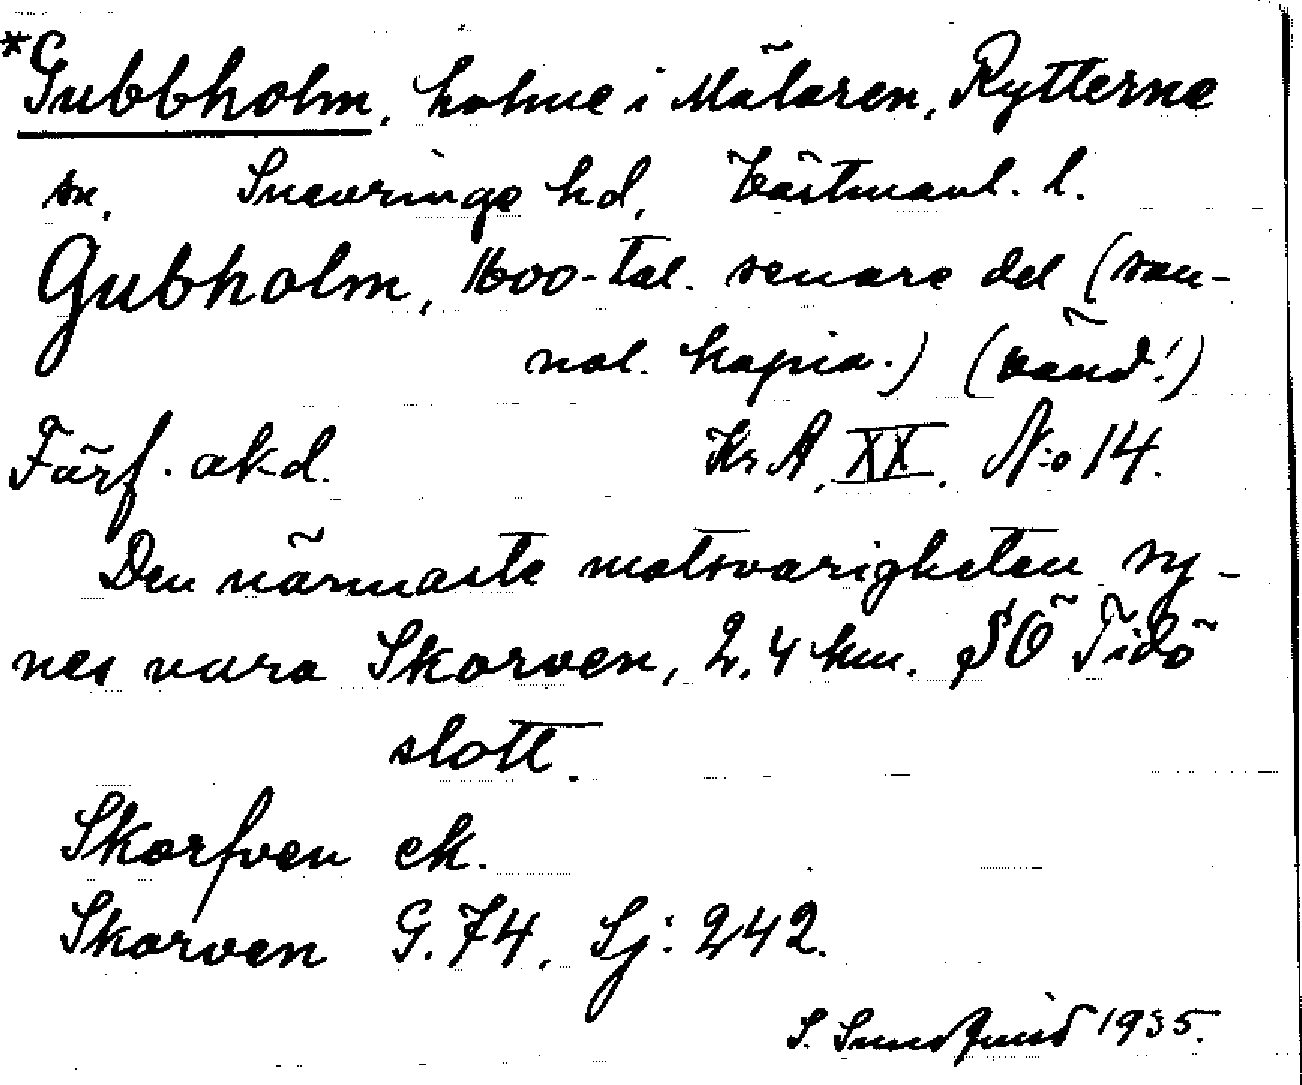 *Gubbholm, holme i Mälaren, Rytterne
sn, Snevringe hd, Västmanl. l.
Gubholm, 1600-tal. senare del (san-
nol. kopia.) (vänd!)
Förf. okd. KrA, XX. N:o 14.
Den närmaste motsvarigheten sy-
nes vara Skorven, 2,4 km. SÖ Tidö
slott.
Skorfven ek.
Skorven G. 74, Sj: 242.
S. Sundquist 1935.